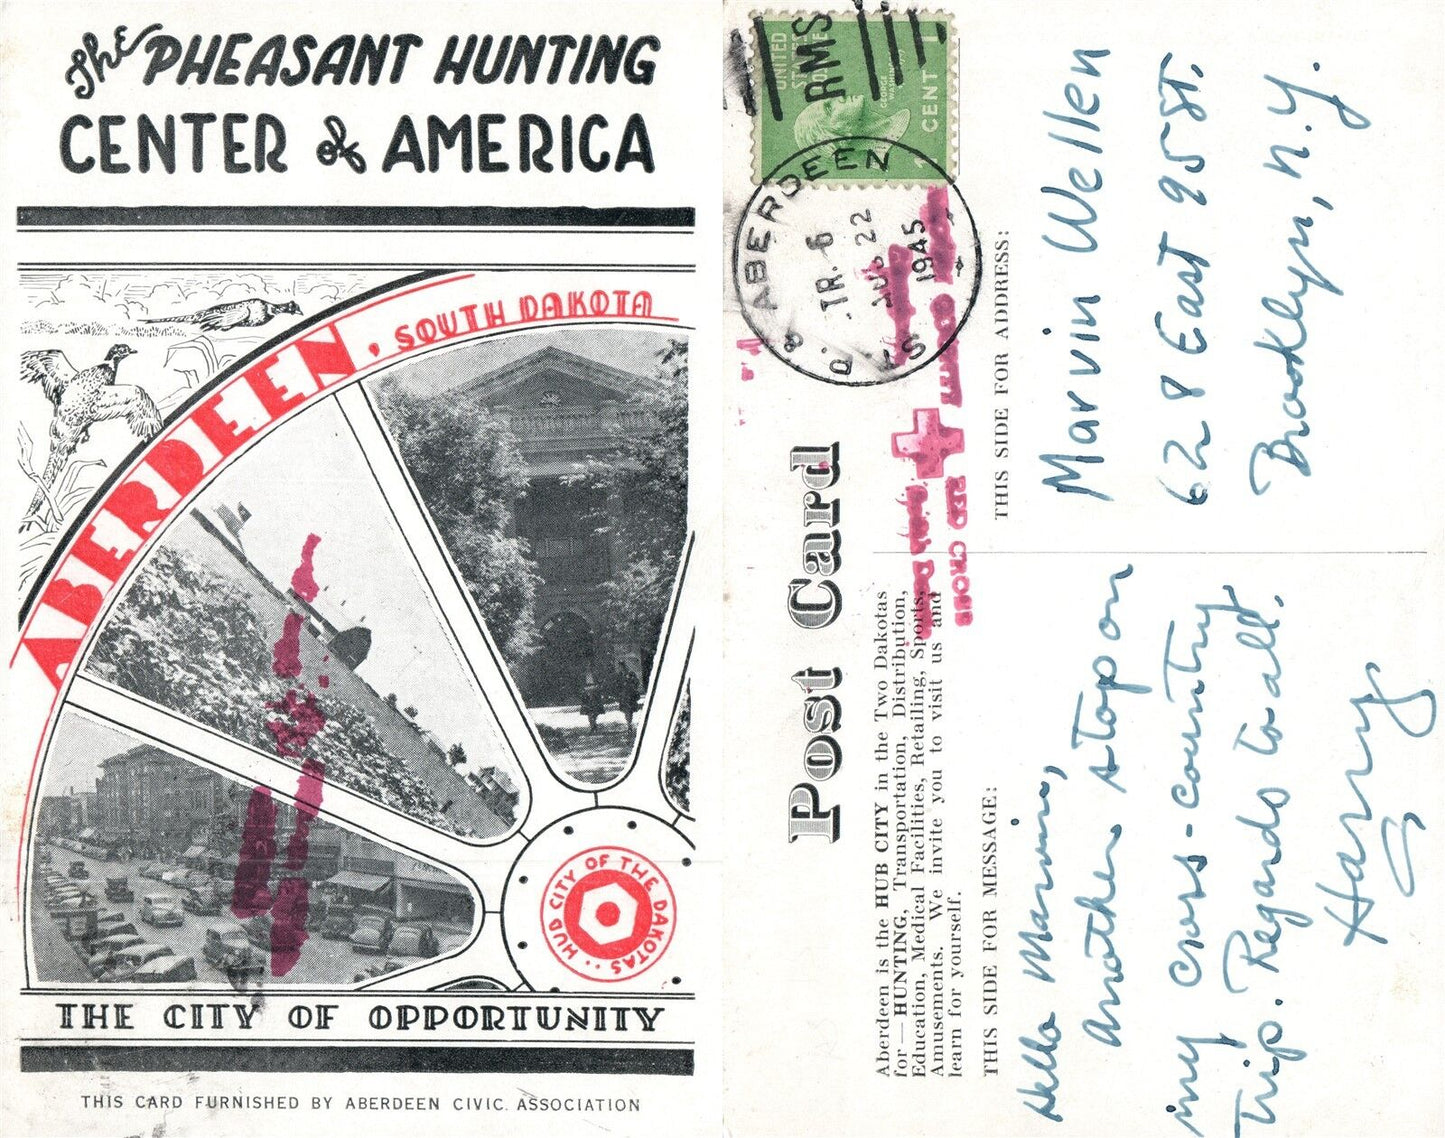 The PHEASANT HUNTING
CENTER of AMERICA
ABERDEEN, SOUTH DAKOTA
HUB CITY OF THE DAKOTAS
THE CITY OF OPPORTUNITY
THIS CARD FURNISHED BY ABERDEEN CIVIC ASSOCIATION
Post Card
Aberdeen is the HUB CITY in the Two Dakotas
for—HUNTING, Transportation, Distribution,
Education, Medical Facilities, Retailing, Sports,
Amusements. We invite you to visit us and
learn for yourself.
THIS SIDE FOR MESSAGE:
Hello Marvin,
Another stop on
my cross-country
Trip. Regards to all.
Harry
THIS SIDE FOR ADDRESS:
Marvin Wellen
628 East 95 St.
Brooklyn, N.Y.
UNITED
STATES
GEORGE
WASHINGTON
1 CENT 1
RMS
ABERDEEN
TR. 6
AUG 22
1945
RED CROSS